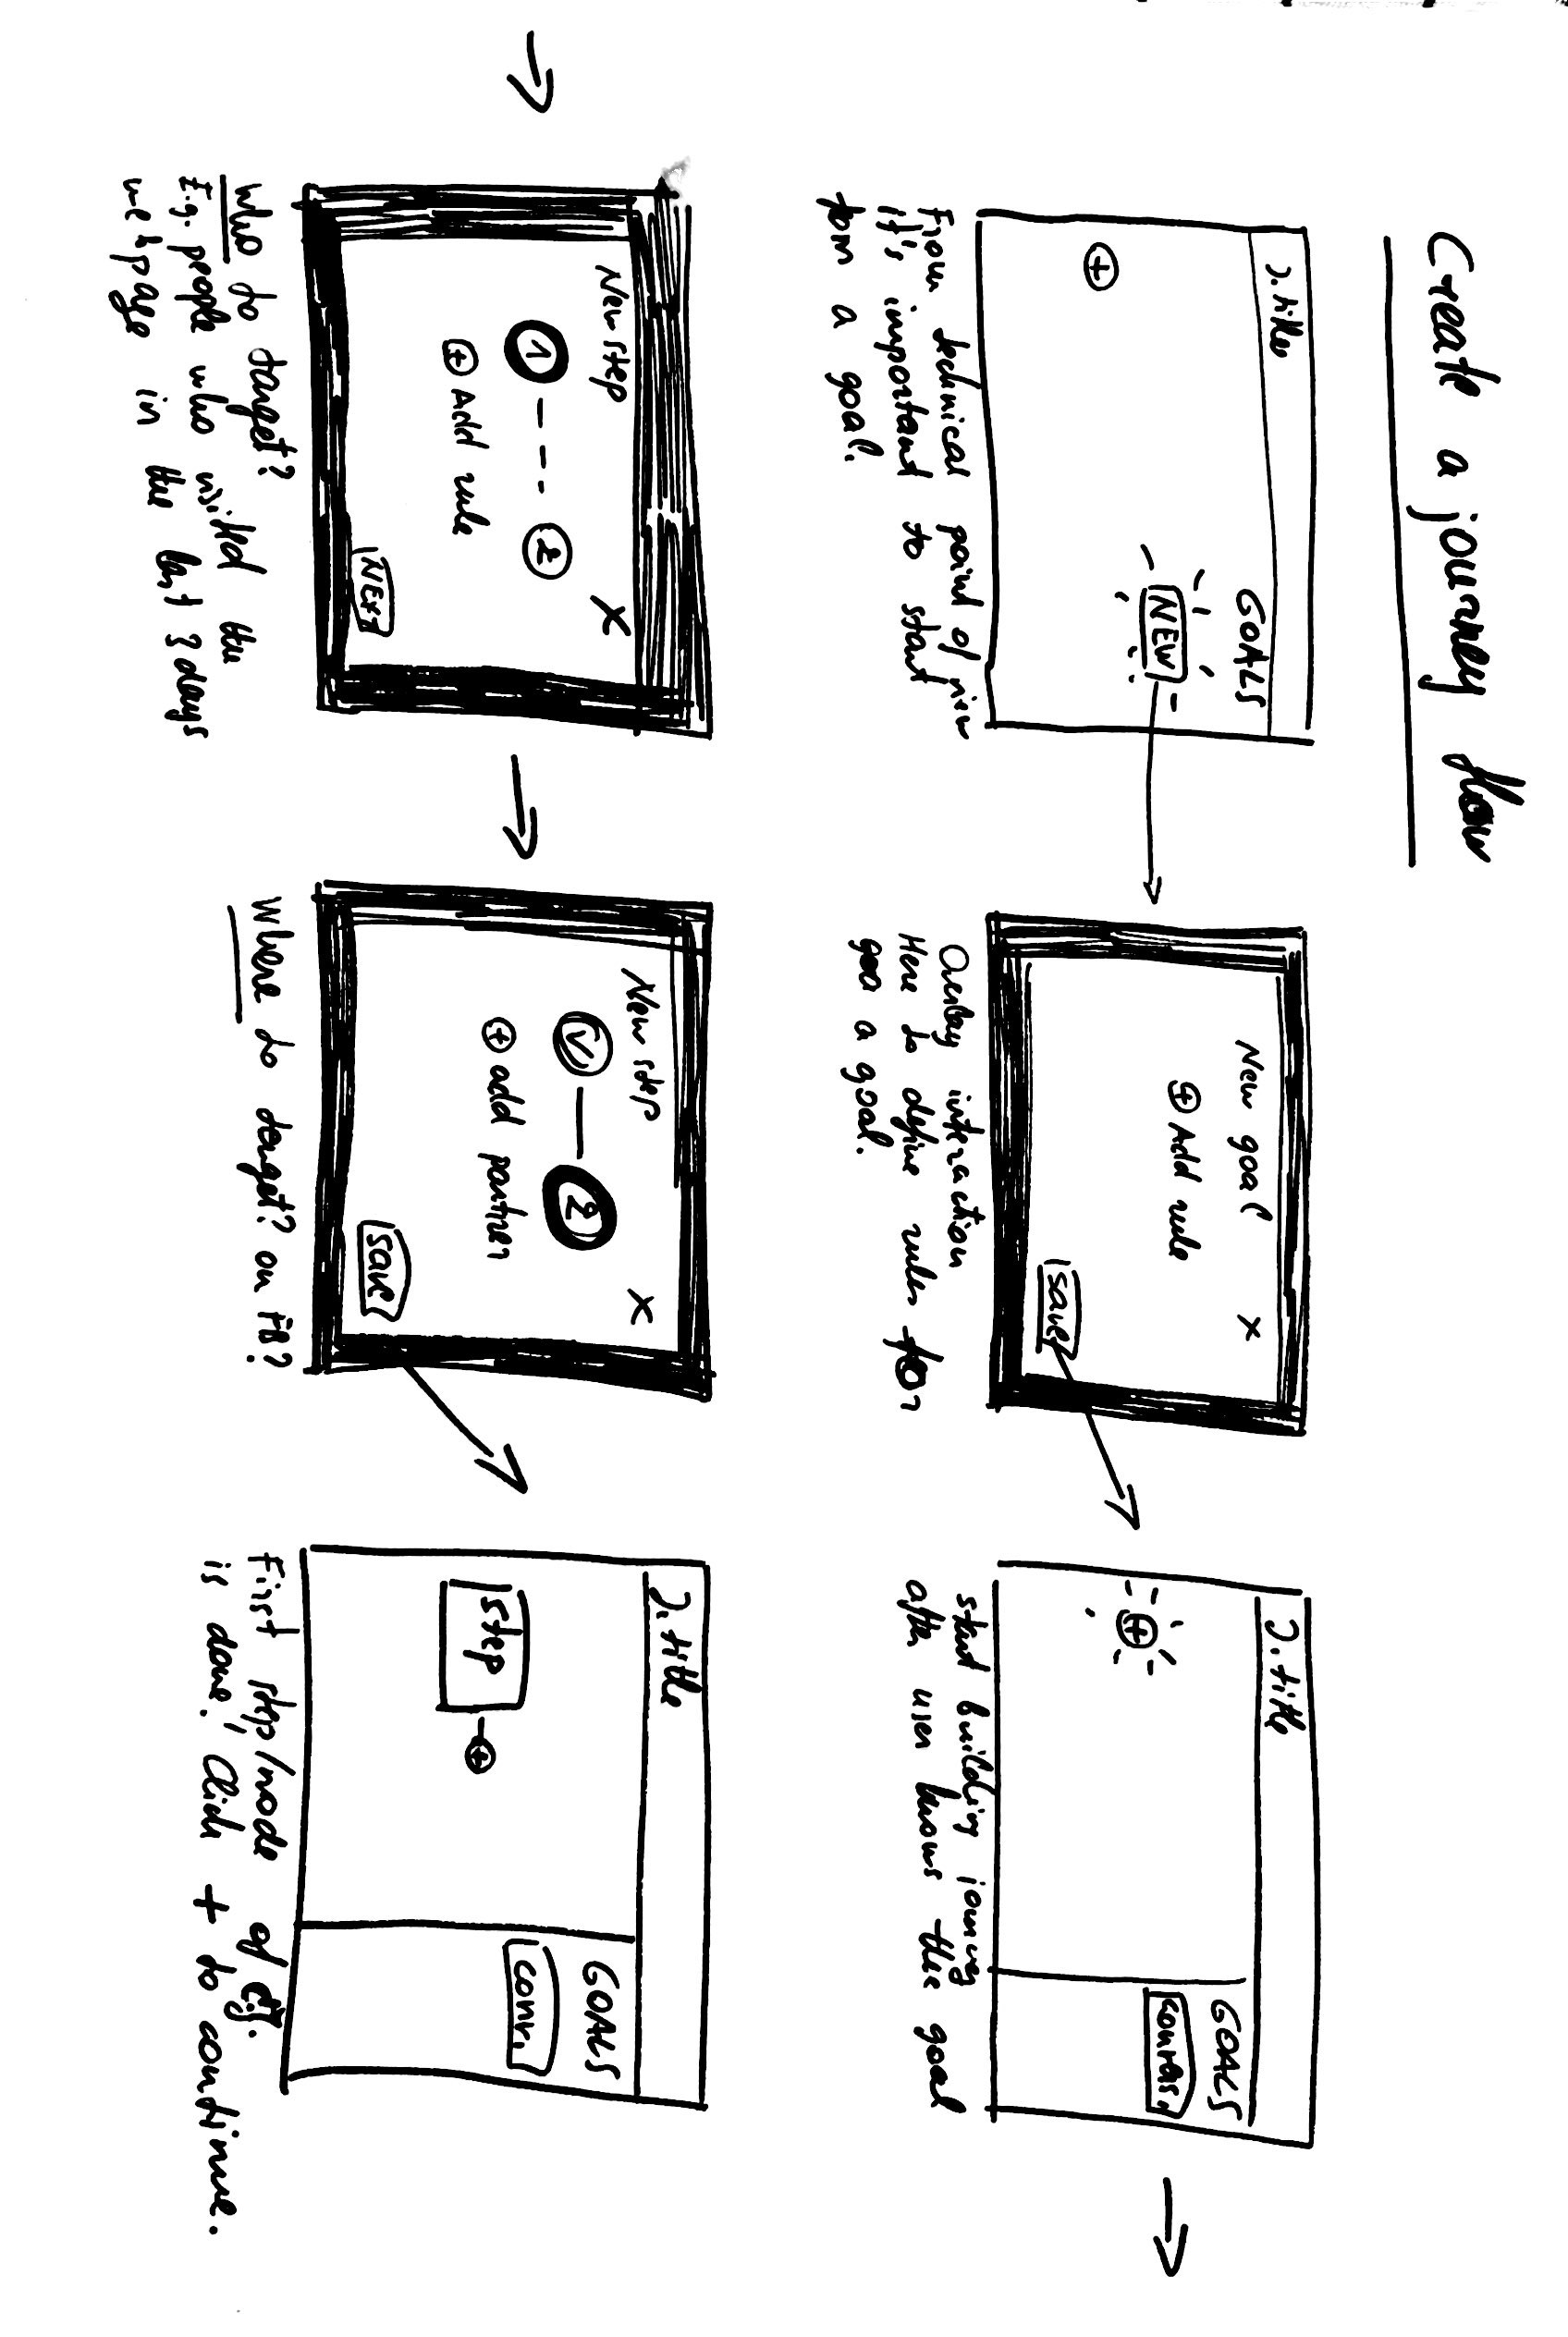 Create a journey flow
J. title
GOALS
NEW
From technical point of view
it's important to start
from a goal.
New goal X
Add rule
Save
Overlay interaction
Here to define rules for
a goal.
J. title
GOALS
start building journey
after user knows the goal
New step X
1 --- 2
Add rule
NEXT
Who to target?
E.g. people who visited the
webpage in the last 3 days
New step X
2
add partner
Save
Where to target? on FB?
J. title
GOALS
Step
conv.
First step/node of
is done! Click + to continue.